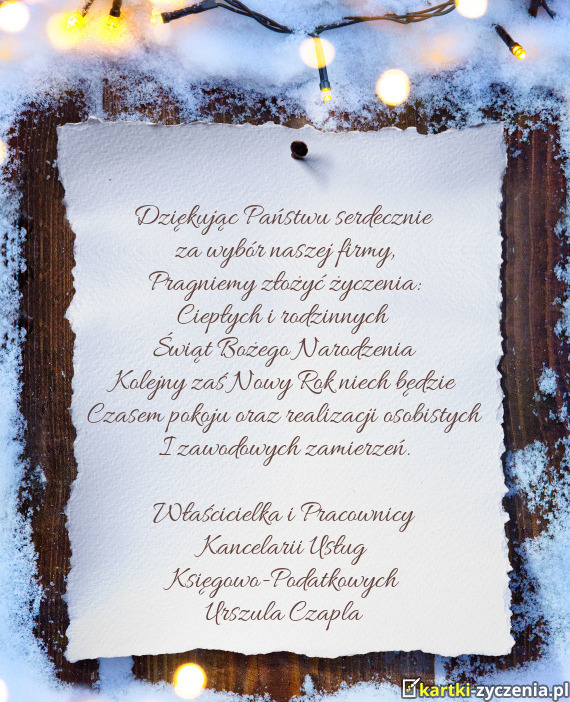 Dziękując Państwu serdecznie
za wybór naszej firmy,
Pragniemy złożyć życzenia:
Ciepłych i rodzinnych
Świąt Bożego Narodzenia
Kolejny zaś Nowy Rok niech będzie
Czasem pokoju oraz realizacji osobistych
I zawodowych zamierzeń.

Właścicielka i Pracownicy
Kancelarii Usług
Księgowo-Podatkowych
Urszula Czapla
kartki-zyczenia.pl